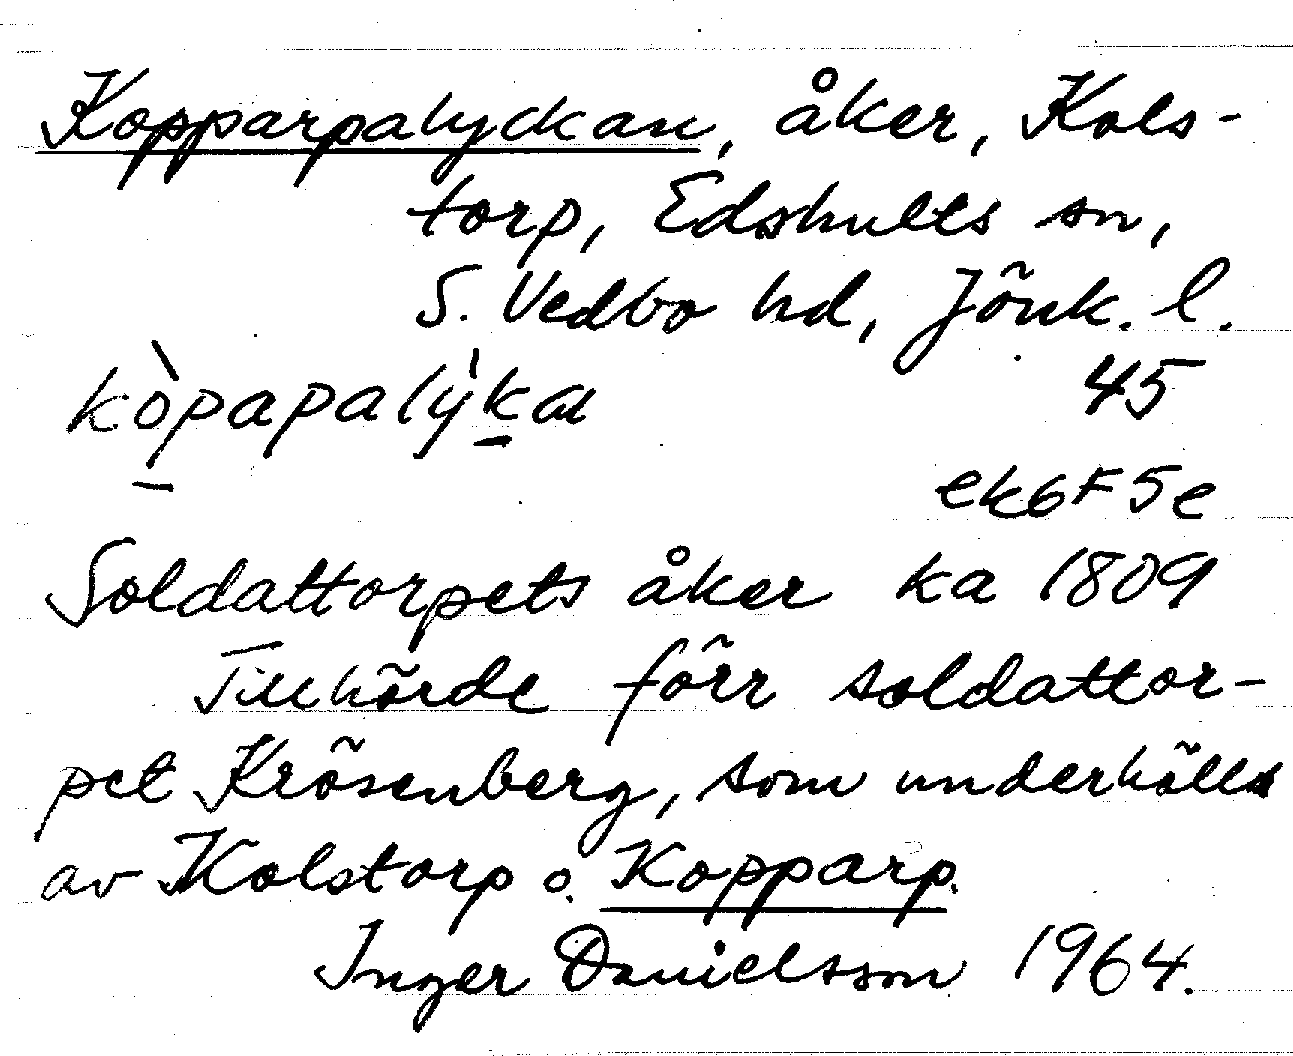 Kopparpalyckan, åker, Kols-
torp, Edshults sn,
S. Vedbo hd, Jönk. l.
kòpapalýkan 45
ek6F5e
Soldattorpets åker ka 1809
Tillhörde förr soldattor-
pet Krösenberg, som underhölls
av Kolstorp o. Kopparp.
Inger Danielsson 1964.